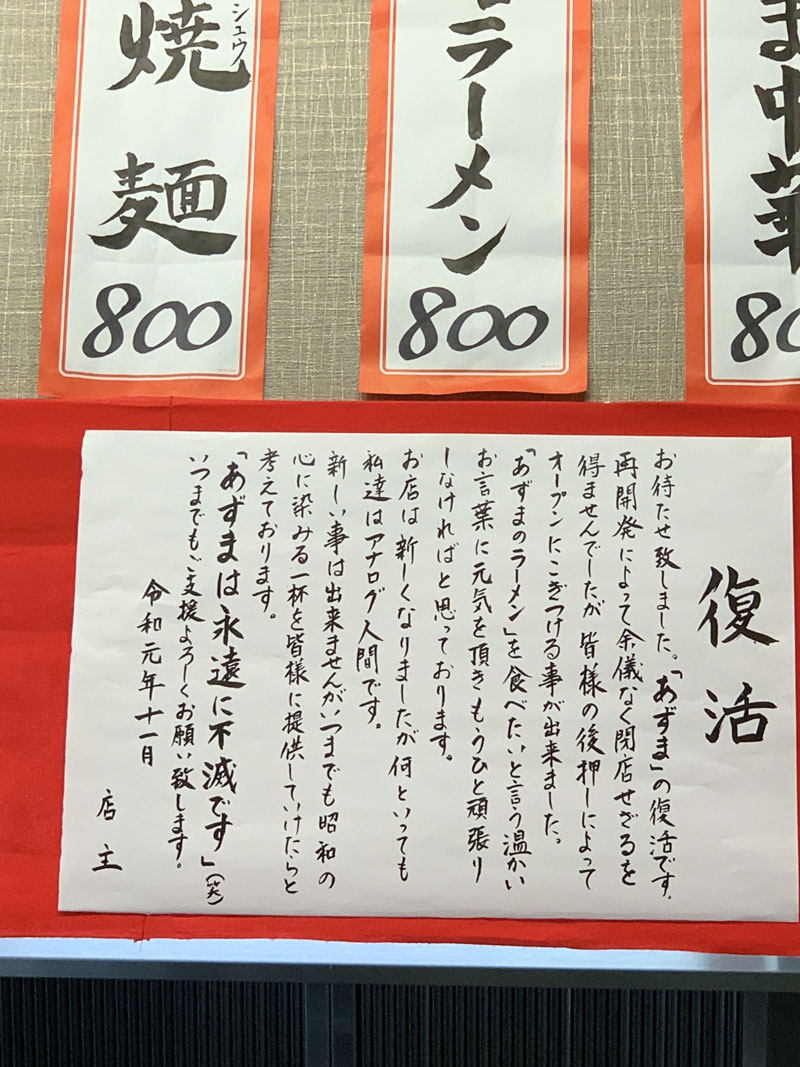 ま中華
80
ラーメン
800
焼麺
シュウ
800
復活
お待たせ致しました。「あずま」の復活です。
再開発によって余儀なく閉店せざるを
得ませんでしたが皆様の後押しによって
オープンにこぎつける事が出来ました。
「あずまのラーメン」を食べたいと言う温かい
お言葉に元気を頂きもうひと頑張り
しなければと思っております。
お店は新しくなりましたが何といっても
私達はアナログ人間です。
新しい事は出来ませんがいつまでも昭和の
心に染みる一杯を皆様に提供していけたらと
考えております。
「あずまは永遠に不滅です」(笑)
いつまでもご支援よろしくお願い致します。
令和元年十一月
店主